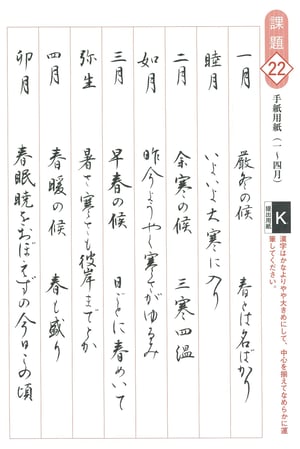 課題
22
手紙用紙（一～四月）
K
提出用紙
漢字はかなよりやや大きめにして、中心を揃えてなめらかに運
筆してください。
一月　厳冬の候　春とは名ばかり
睦月　いよいよ大寒に入り
二月　余寒の候　三寒四温
如月　昨今ようやく寒さがゆるみ
三月　早春の候　日ごとに春めいて
弥生　暑さ寒さも彼岸までとか
四月　春暖の候　春も盛り
卯月　春眠暁をおぼえずの今日この頃